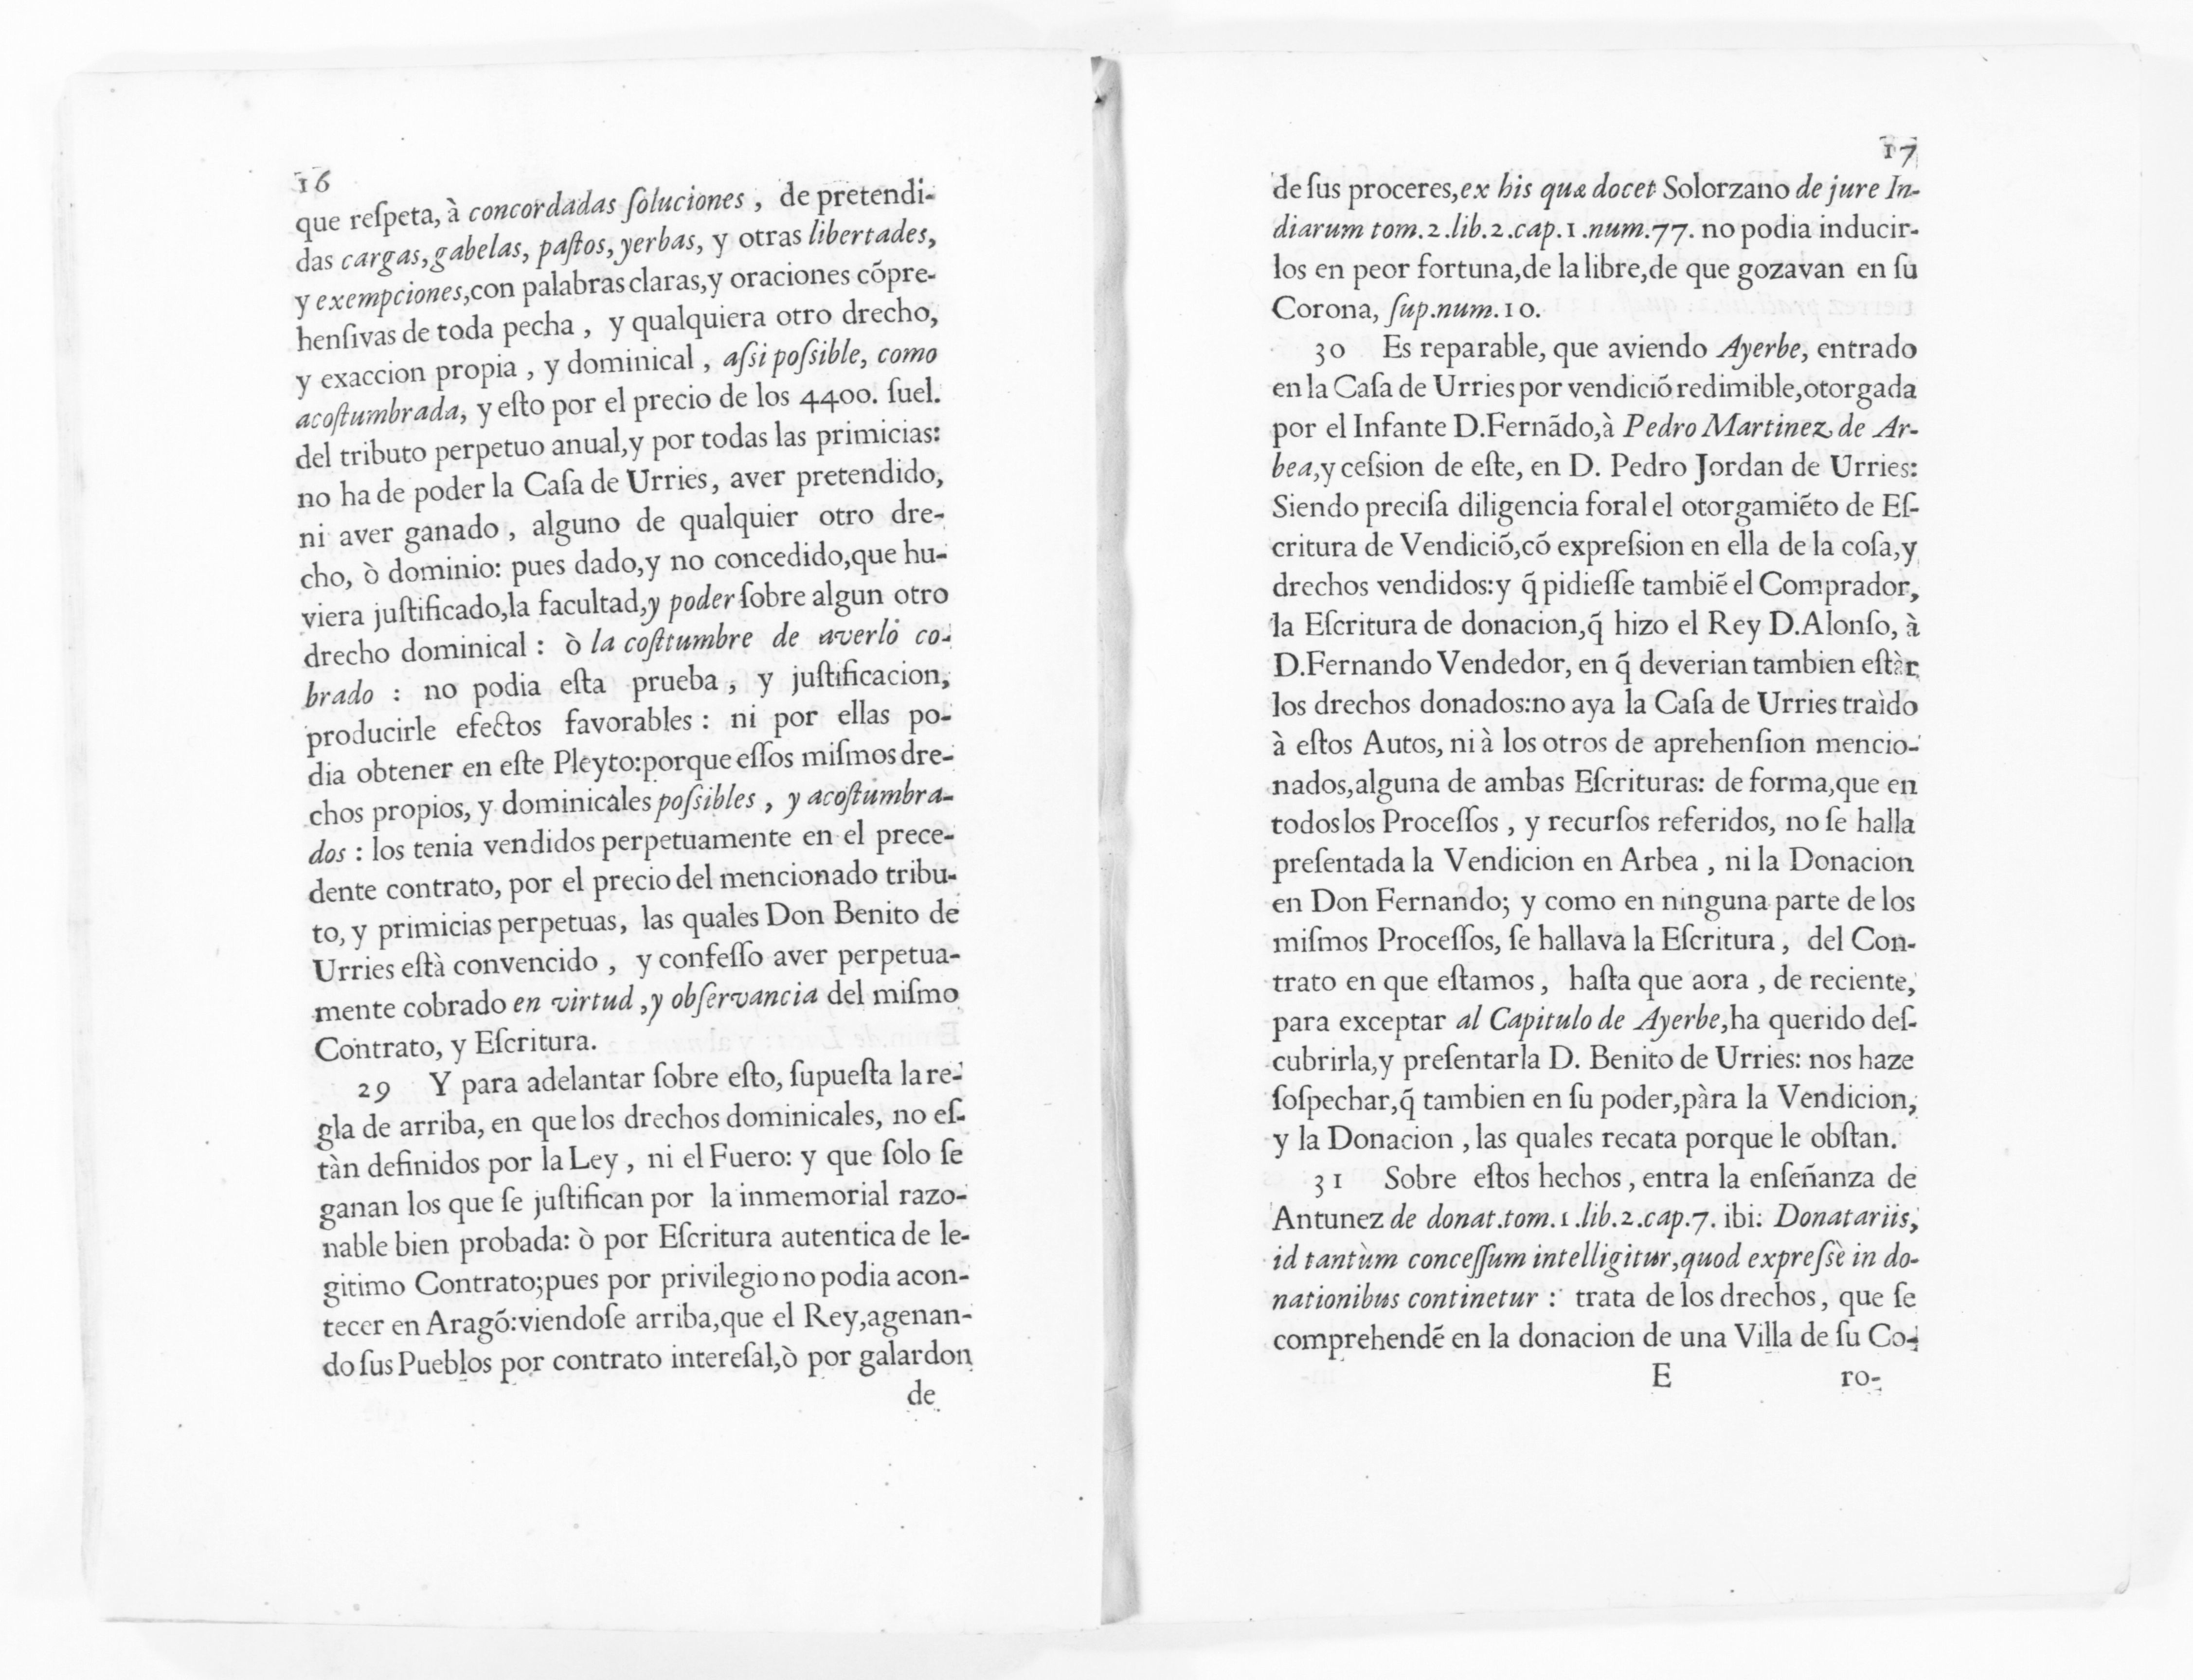 16
que reſpeta, à concordadas ſoluciones , de pretendi-
das cargas,gabelas, paſtos, yerbas, y otras libertades,
y exempciones,con palabras claras,y oraciones cõpre-
henſivas de toda pecha , y qualquiera otro drecho,
y exaccion propia , y dominical , aſsi poſsible, como
acoſtumbrada, y eſto por el precio de los 4400. ſuel.
del tributo perpetuo anual,y por todas las primicias:
no ha de poder la Caſa de Urries, aver pretendido,
ni aver ganado , alguno de qualquier otro dre-
cho, ò dominio: pues dado,y no concedido,que hu-
viera juſtificado,la facultad,y poder ſobre algun otro
drecho dominical : ò la coſttumbre de averlo co-
brado : no podia eſta prueba , y juſtificacion,
producirle efectos favorables : ni por ellas po-
dia obtener en eſte Pleyto:porque eſſos miſmos dre-
chos propios, y dominicales poſsibles , y acoſtumbra-
dos : los tenia vendidos perpetuamente en el prece-
dente contrato, por el precio del mencionado tribu-
to, y primicias perpetuas, las quales Don Benito de
Urries eſtà convencido , y confeſſo aver perpetua-
mente cobrado en virtud ,y obſervancia del miſmo
Contrato, y Eſcritura.
29 Y para adelantar ſobre eſto, ſupueſta la re-
gla de arriba, en que los drechos dominicales, no eſ-
tàn definidos por la Ley , ni el Fuero: y que ſolo ſe
ganan los que ſe juſtifican por la inmemorial razo-
nable bien probada: ò por Eſcritura autentica de le-
gitimo Contrato;pues por privilegio no podia acon-
tecer en Aragõ:viendoſe arriba,que el Rey,agenan-
do ſus Pueblos por contrato intereſal,ò por galardon
de
17
de ſus proceres,ex his quæ docet Solorzano de jure In-
diarum tom.2.lib.2.cap.1.num.77. no podia inducir-
los en peor fortuna,de la libre,de que gozavan en ſu
Corona, ſup.num.10.
30 Es reparable, que aviendo Ayerbe, entrado
en la Caſa de Urries por vendiciõ redimible,otorgada
por el Infante D.Fernãdo,à Pedro Martinez de Ar-
bea,y ceſsion de eſte, en D. Pedro Jordan de Urries:
Siendo preciſa diligencia foral el otorgamiẽto de Eſ-
critura de Vendiciõ,cõ expreſsion en ella de la coſa,y
drechos vendidos:y q̃ pidieſſe tambiẽ el Comprador,
la Eſcritura de donacion,q̃ hizo el Rey D.Alonſo, à
D.Fernando Vendedor, en q̃ deverian tambien eſtàr
los drechos donados:no aya la Caſa de Urries traìdo
à eſtos Autos, ni à los otros de aprehenſion mencio-
nados,alguna de ambas Eſcrituras: de forma,que en
todos los Proceſſos , y recurſos referidos, no ſe halla
preſentada la Vendicion en Arbea , ni la Donacion
en Don Fernando; y como en ninguna parte de los
miſmos Proceſſos, ſe hallava la Eſcritura , del Con-
trato en que eſtamos , haſta que aora , de reciente,
para exceptar al Capitulo de Ayerbe,ha querido deſ-
cubrirla,y preſentarla D. Benito de Urries: nos haze
ſoſpechar,q̃ tambien en ſu poder,pàra la Vendicion,
y la Donacion , las quales recata porque le obſtan.
31 Sobre eſtos hechos , entra la enſeñanza de
Antunez de donat.tom.1.lib.2.cap.7. ibi: Donatariis,
id tantùm conceſſum intelligitur,quod expreſsè in do-
nationibus continetur : trata de los drechos , que ſe
comprehendẽ en la donacion de una Villa de ſu Co-
E ro-